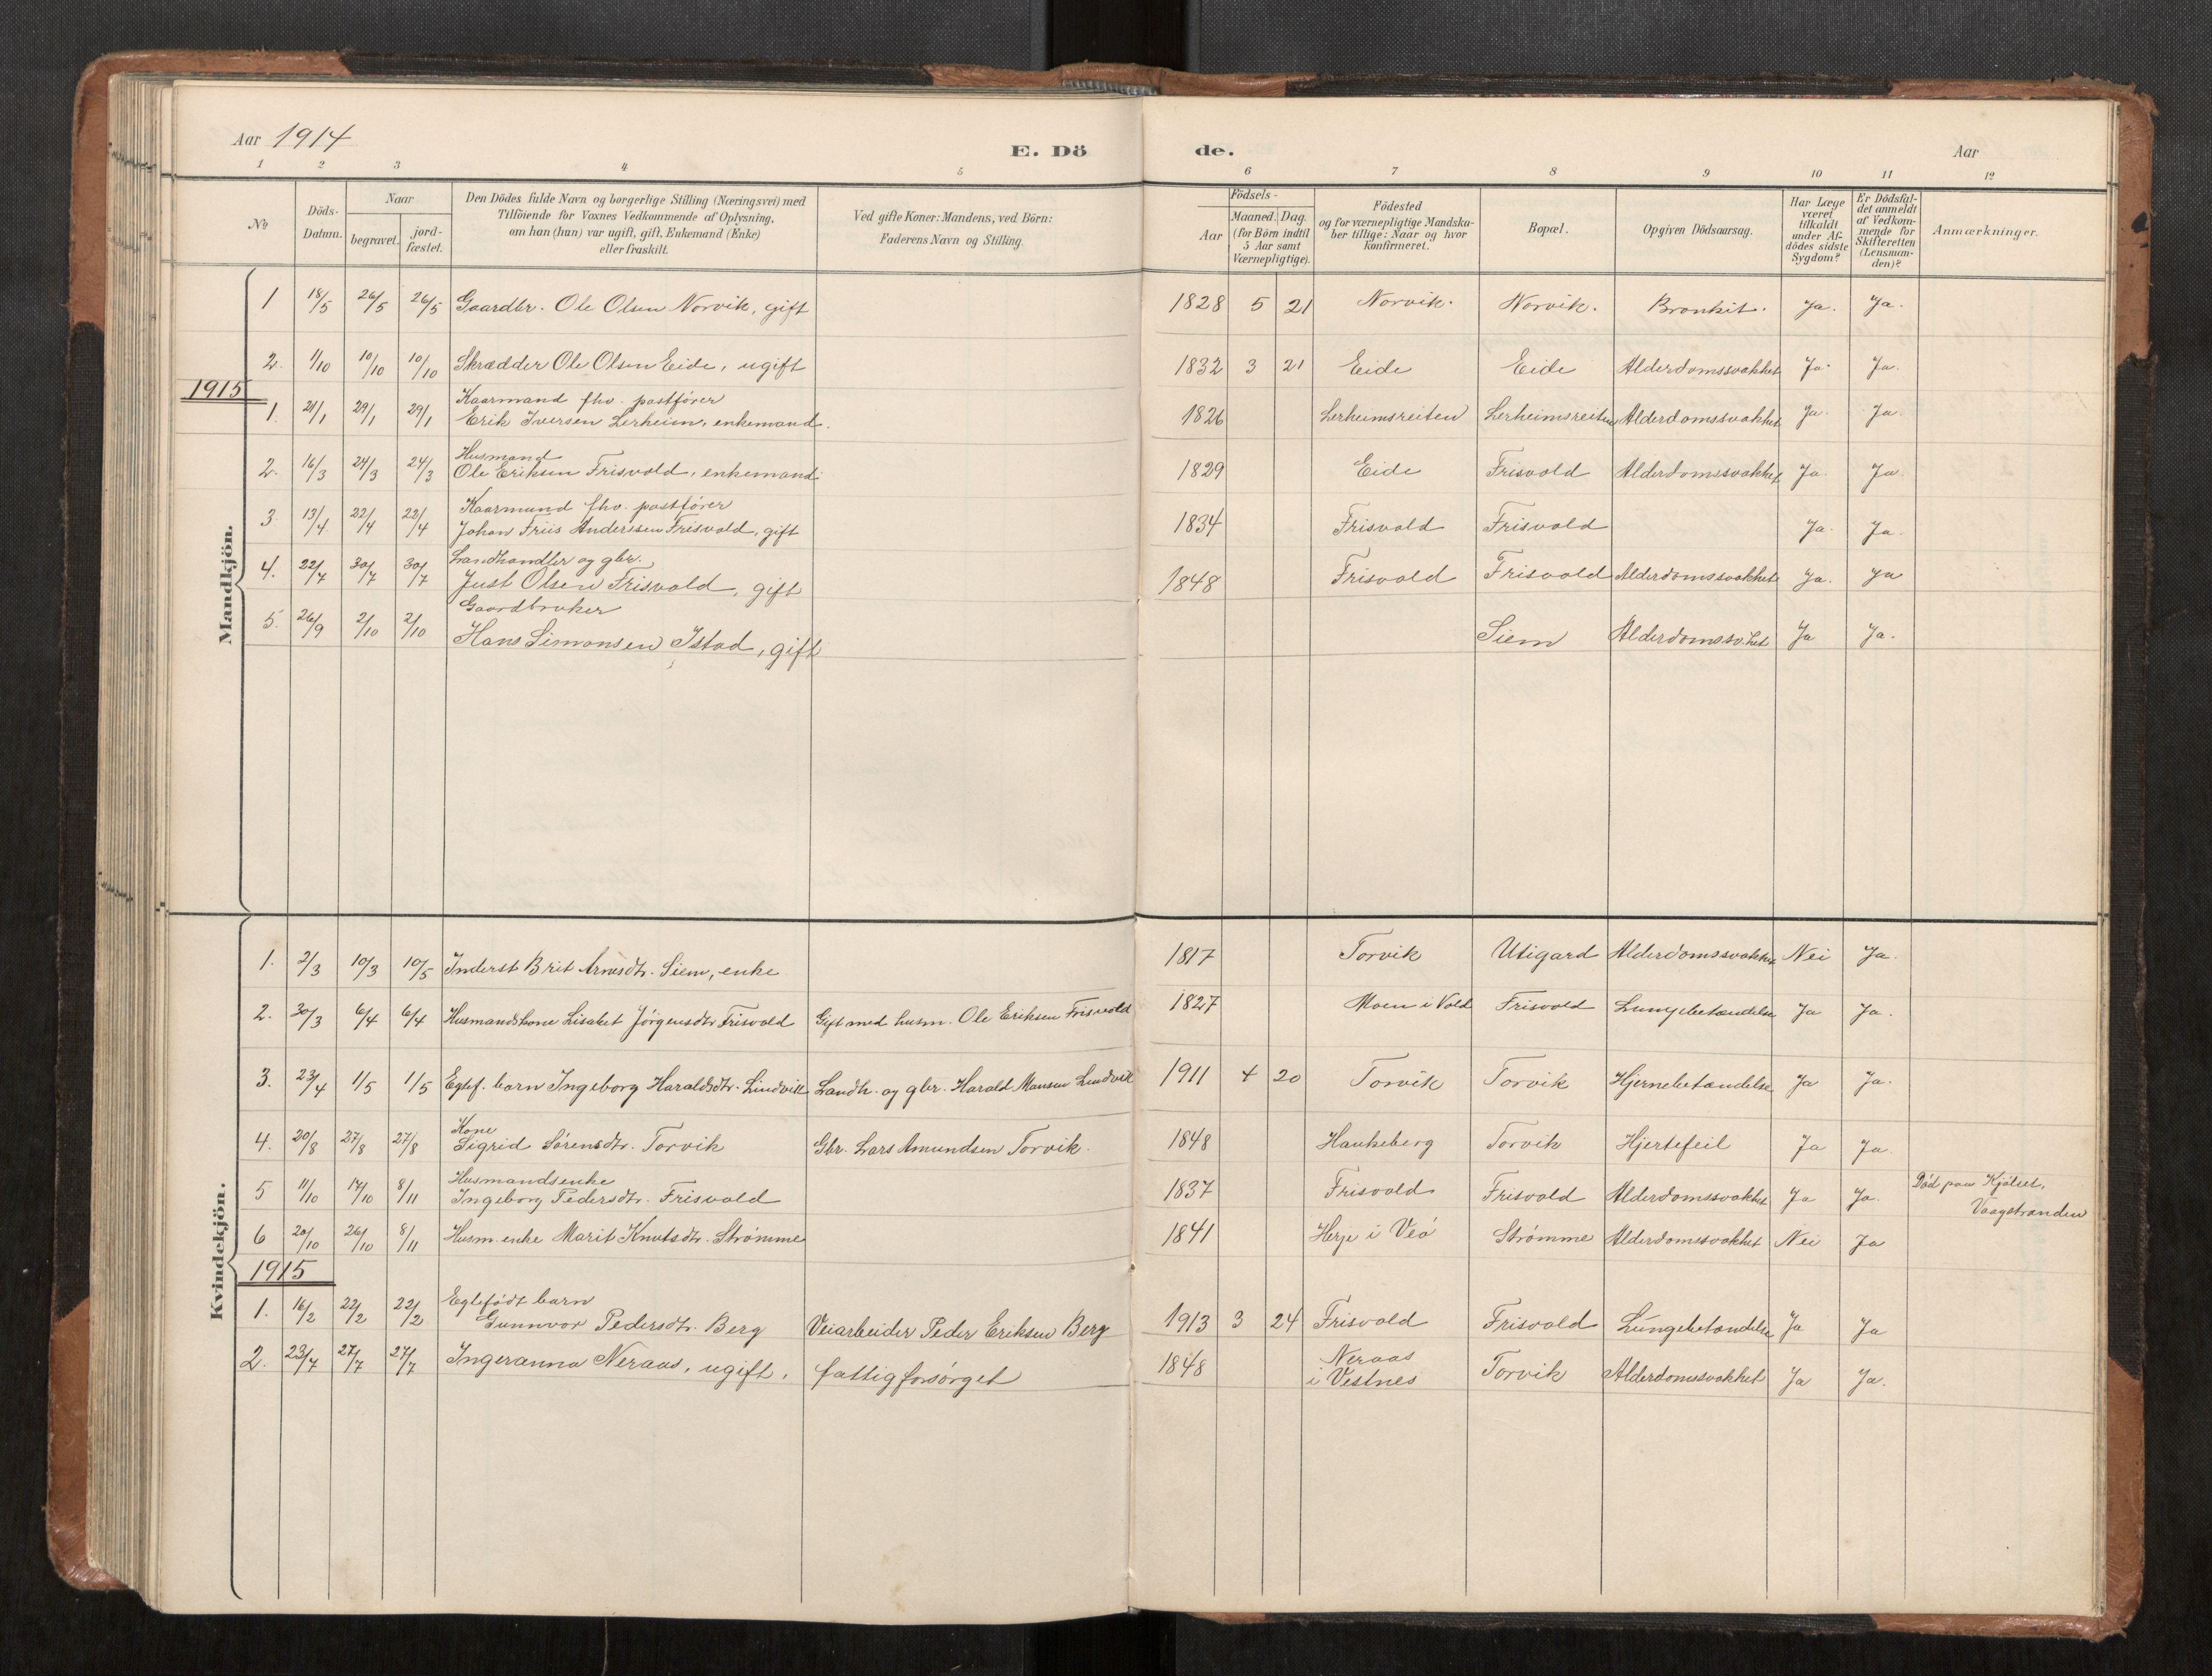 Aar 1914
E. Dö
de.
Aar
1 2 3 4 5 6 7 8 9 10 11 12
№
Döds-Datum.
Naar
begravet.
jord-fæstet.
Den Dödes fulde Navn og borgerlige Stilling (Næringsvei) med
Tilföiende for Voxnes Vedkommende af Oplysning,
om han (hun) var ugift, gift, Enkemand (Enke)
eller fraskilt.
Ved gifte Koner: Mandens, ved Börn:
Faderens Navn og Stilling.
Födsels-
Aar
Maaned. Dag.
(for Börn indtil
5 Aar samt
Værnepligtige).
Födested
og for værnepligtige Mandska-
ber tillige: Naar og hvor
konfirmeret.
Bopæl.
Opgiven Dödsaarsag.
Har Læge
været
tilkaldt
under Af-
dödes sidste
Sygdom?
Er Dödsfal-
det anmeldt
af Vedkom-
mende for
Skifteretten
(Lensman-
den)?
Anmærkninger.
Mandkjön.
1 18/5 26/5 26/5 Gaardbr. Ole Olsen Norvik, gift 1828 5 21 Norvik. Norvik. Bronkit. Ja. Ja.
2. 1/10 10/10 10/10 Skrædder Ole Olsen Eide, ugift 1832 3 21 Eide Eide Alderdomssvakhet Ja. Ja.
1915
Kaarmand fhv. postfører
1. 21/1 29/1 29/1 Erik Iversen Lerheim, enkemand. 1826 Lerheimsreiten Lerheimsreiten Alderdomssvakhet Ja. Ja.
Husmand
2. 16/3 24/3 24/3 Ole Eriksen Frisvold, enkemand. 1829 Eide Frisvold Alderdomssvakhet Ja. Ja.
Kaarmand fhv. postfører
3. 13/4 22/4 22/4 Johan Friis Andersen Frisvold, gift 1834 Frisvold Frisvold Ja. Ja.
Landhandler og gbr.
4. 22/7 30/7 30/7 Just Olsen Frisvold, gift 1848 Frisvold Frisvold Alderdomssvakhet Ja. Ja
Gaardbruker
5. 26/9 2/10 2/10 Hans Simonsen Istad, gift Siem Alderdomssv.het Ja Ja.
Kvindekjön.
1. 2/3 10/3 10/5 Inderst Brit Arnesdtr. Siem, enke 1817 Torvik Utigard Alderdomssvakhet Nei Ja.
2. 30/3 6/4 6/4 Husmandskone Lisabet Jörgensdtr. Frisvold Gift med husm. Ole Eriksen Frisvold 1827 Moen i Vold Frisvold Lungebetændelse Ja Ja.
3. 23/4 1/5 1/5 Egtef. barn Ingeborg Haraldsdtr. Lindvik Landh. og gbr. Harald Monsen Lindvik 1911 4 20 Torvik Torvik Hjernebetændelse Ja Ja.
Kone
4. 20/8 27/8 27/8 Sigrid Sørensdtr. Torvik Gbr. Lars Amundsen Torvik. 1848 Haukeberg Torvik Hjertefeil Ja Ja.
Husmandsenke
5 11/10 17/10 8/11 Ingeborg Pedersdtr. Frisvold 1837 Frisvold Frisvold Alderdomssvakhet Ja Ja. Död paa Kjölset,
Vaagstranden
6 20/10 26/10 8/11 Husm. enke Marit Knutsdtr. Strømme 1841 Herje i Veö Strømme Alderdomssvakhet Nei Ja
1915
Egtefödt barn
1. 16/2 22/2 22/2 Gunnvor Pedersdtr. Berg Veiarbeider Peder Eriksen Berg 1913 3 24 Frisvold Frisvold Lungebetændelse Ja Ja
2. 23/7 27/7 27/7 Ingeranna Neraas, ugift, fattigforsørget 1848 Neraas
i Vestnes Torvik Alderdomssvakhet Ja Ja.